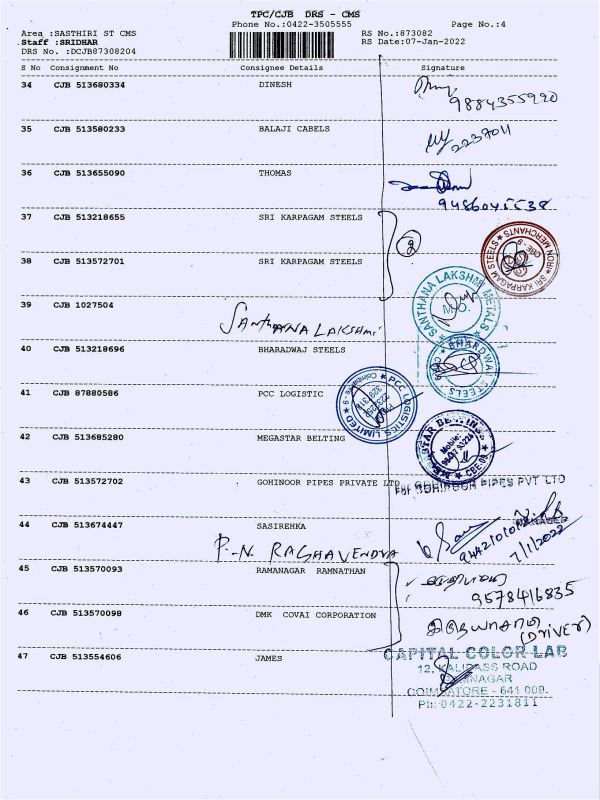 TPC/CJB DRS - CMS
Phone No.:0422-3505555
Page No.:4
Area :SASTHIRI ST CMS
RS No.:873082
Staff :SRIDHAR
RS Date:07-Jan-2022
DRS No. :DCJB87308204
S No Consignment No Consignee Details Signature
34 CJB 513680334 DINESH
9884355920
35 CJB 513580233 BALAJI CABELS
2237011
36 CJB 513655090 THOMAS
9486045538
37 CJB 513218655 SRI KARPAGAM STEELS
2
SRI KARPAGAM STEELS
38 CJB 513572701 SRI KARPAGAM STEELS
SANTHANA LAKSHMI METALS
39 CJB 1027504
SANTHANA LAKSHMI
40 CJB 513218696 BHARADWAJ STEELS
BHARDWAJ STEELS
41 CJB 87880586 PCC LOGISTIC
PCC LOGISTICS LIMITED
42 CJB 513685280 MEGASTAR BELTING
Mobile:
43 CJB 513572702 GOHINOOR PIPES PRIVATE LTD
For GOHINOOR PIPES PVT LTD
44 CJB 513674447 SASIREHKA
MANAGER
P.N. RAGHAVENDYA
7/1/2022
45 CJB 513570093 RAMANAGAR RAMNATHAN
9578416835
46 CJB 513570098 DMK COVAI CORPORATION
(DRIVER)
47 CJB 513554606 JAMES
CAPITAL COLOR LAB
12, KALIDASS ROAD
COIMBATORE - 641 009.
Ph: 0422-2231811